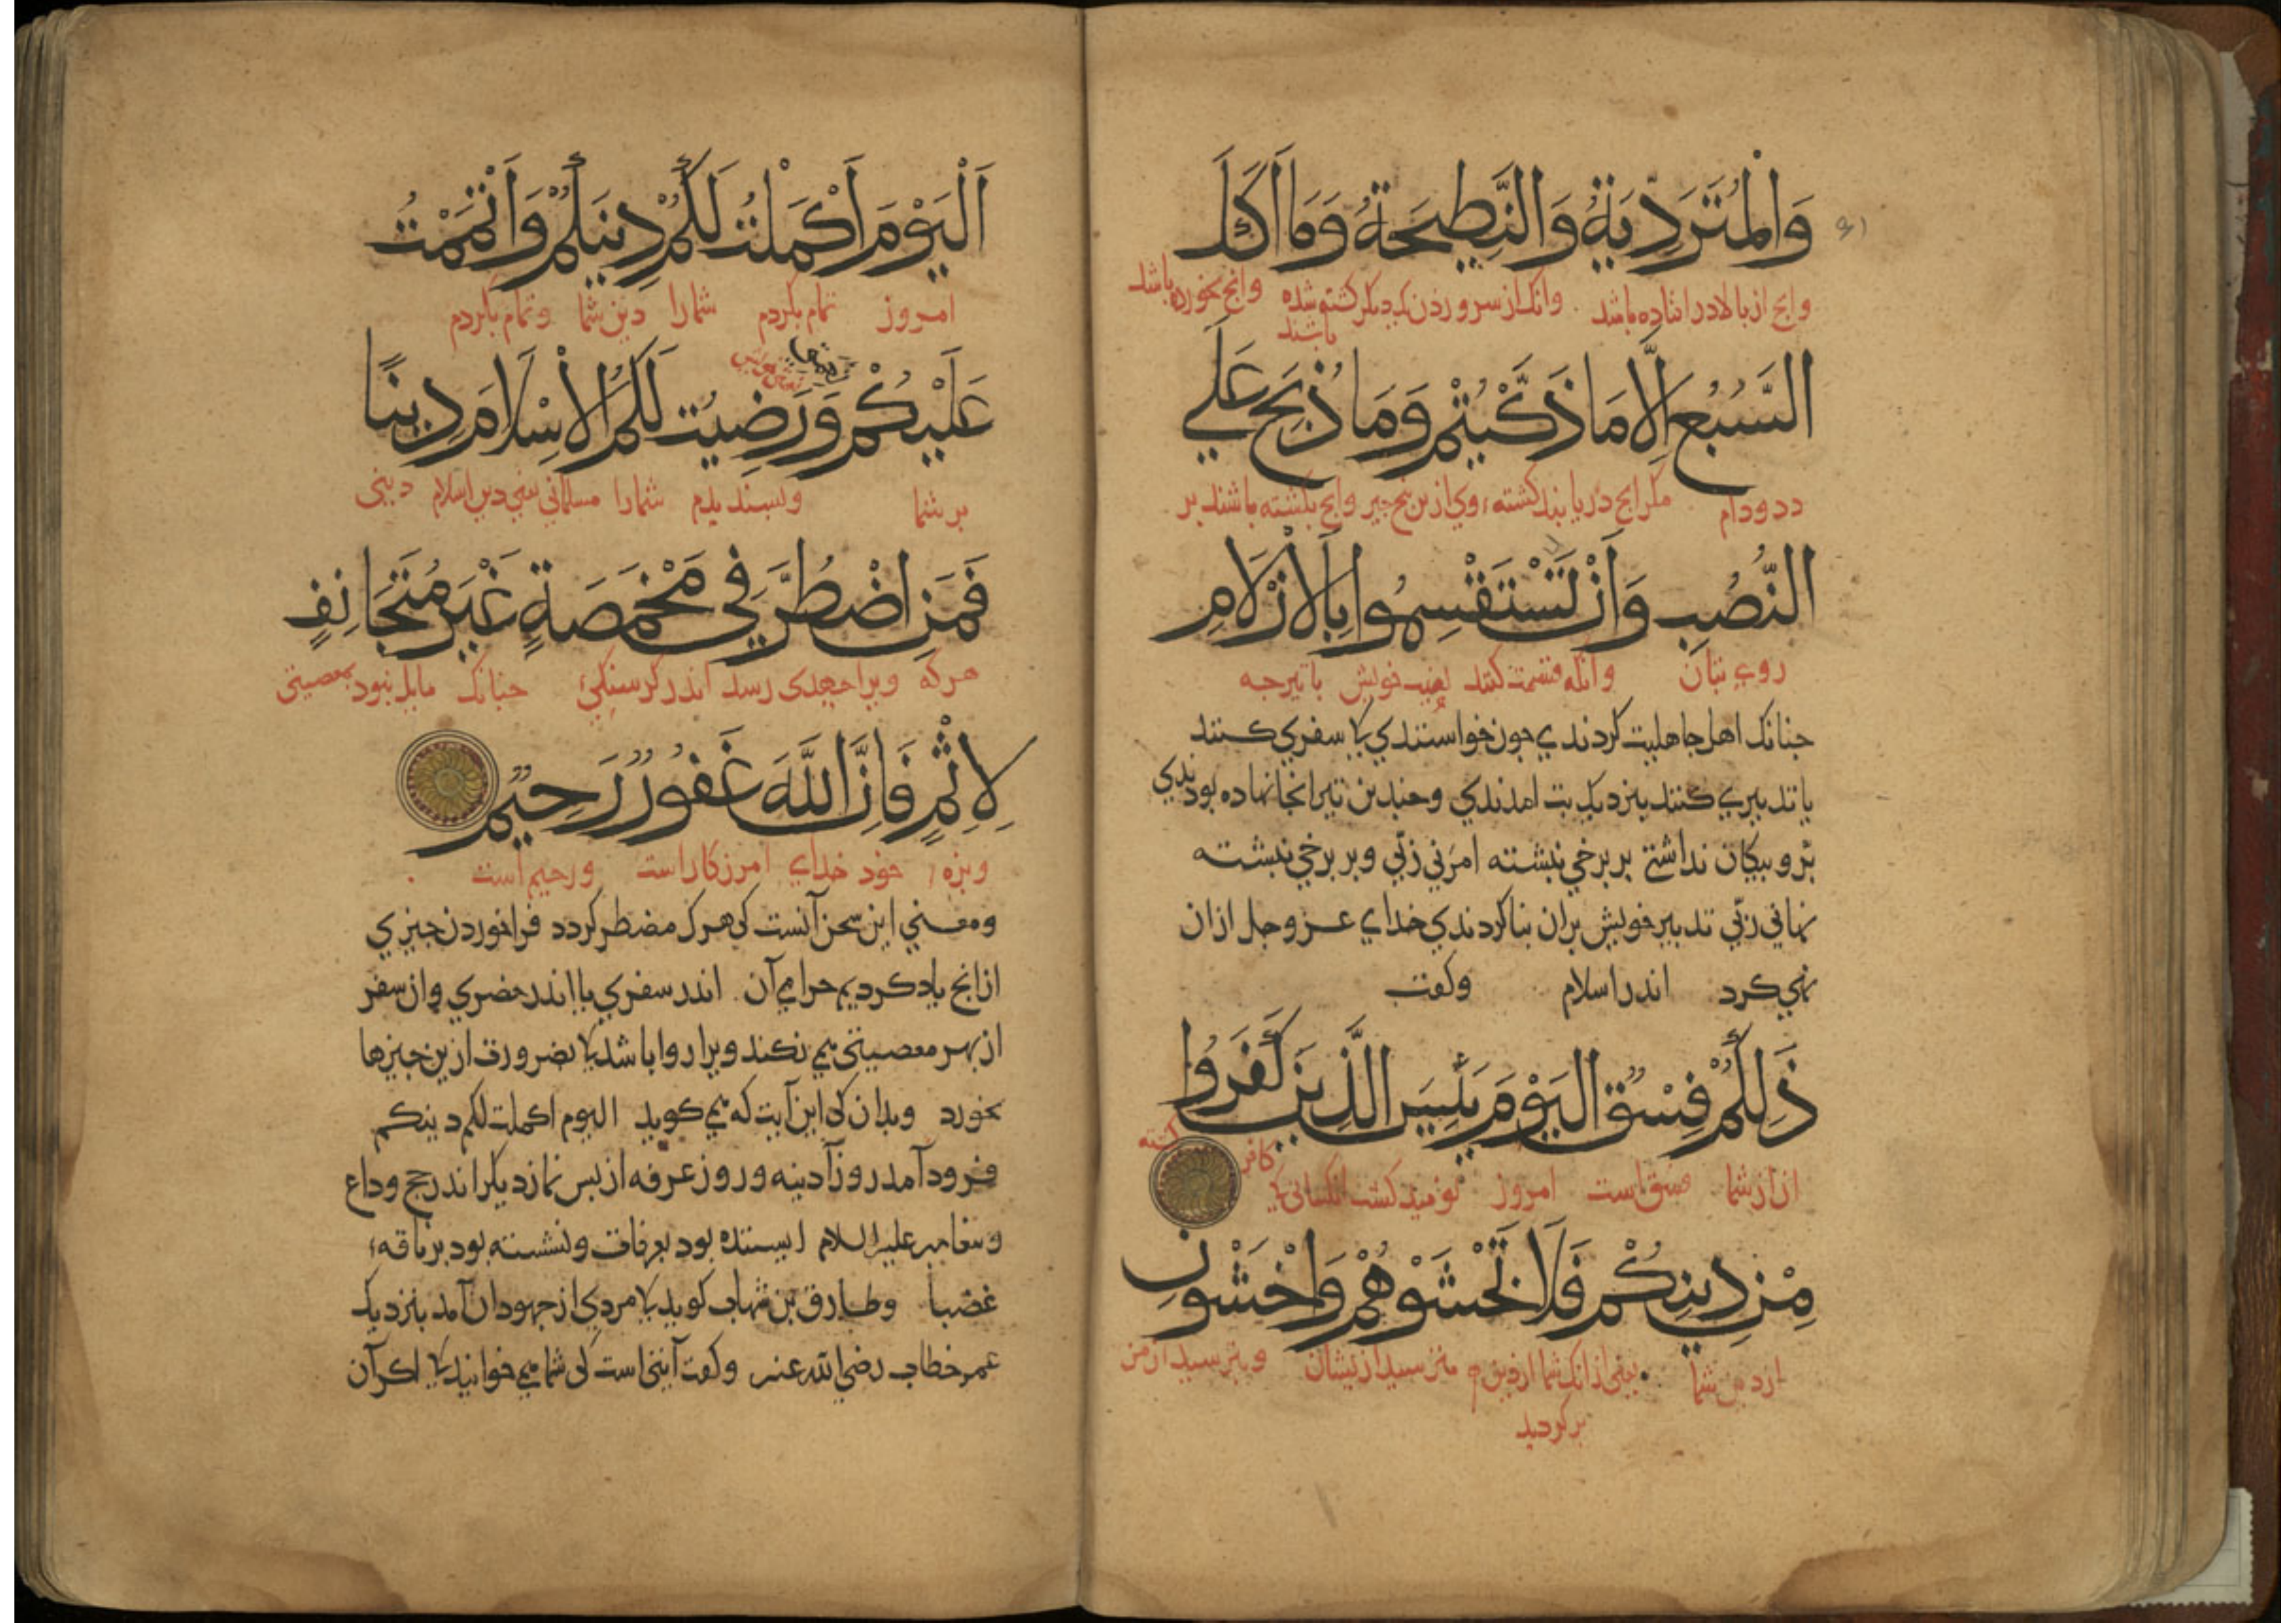 وَالْمُتَرَدِّيَةُ وَالنَّطِيحَةُ وَمَا أَكَلَ
وانج از بالا در افتاده باشد وانک از سرو زدن یکدیگر کشته شده باشند وانج بخورده باشد
السَّبُعُ إِلَّا مَا ذَكَّيْتُمْ وَمَا ذُبِحَ عَلَى
دد و دام مکر انج دریابید کشته وی ازین نخجیر وانج بکشته باشند بر
النُّصُبِ وَأَنْ تَسْتَقْسِمُوا بِالْأَزْلَامِ
روی بتان وانکه قسمت کنند خویش با تیرجه
جنانک اهل جاهلیت کردندی جون خواستندی کا سفری کنند
یا تدبیری کنند بنزدیک بت امدندی و جندین تیر انجا نهاده بودندی
برو بیکان نداشتی بر برخی نبشته امرنی ربّی و بر برخی نبشته
نهانی ربّی تدبیر خویش بران بنا کردندی خدای عز و جل ازان
نهی کرد اندر اسلام وکفت
ذَلِكُمْ فِسْقٌ الْيَوْمَ يَئِسَ الَّذِينَ كَفَرُوا
از شما فسق است امروز نومید کشت انکسانی کا کافر کشته
مِنْ دِينِكُمْ فَلَا تَخْشَوْهُمْ وَاخْشَوْنِ
از دین شما یعنی از انک شما از دین برکردید مترسید ازیشان و بترسید از من
اَلْيَوْمَ أَكْمَلْتُ لَكُمْ دِينَكُمْ وَأَتْمَمْتُ
امروز تمام بکردم شما را دین شما و تمام بکردم
عَلَيْكُمْ وَرَضِيتُ لَكُمُ الْإِسْلَامَ دِينًا
بر شما وبسندیدم شما را مسلمانی یعنی دین اسلام دینی
فَمَنِ اضْطُرَّ فِي مَخْمَصَةٍ غَيْرَ مُتَجَانِفٍ
هرکه ویرا جهدی رسد اندر کرسنکی جنانک مایل نبود بمعصیتی
لِإِثْمٍ فَإِنَّ اللَّهَ غَفُورٌ رَحِيمٌ
وبزه خود خدای امرزکار است ورحیم است
ومعنی این سخن آنست کی هرک مضطر کردد فرا خوردن جیزی
ازانج یاد کردیم حرامی آن اندر سفری یا اندر حضری وان سفر
از بهر معصیتی می نکند ویرا روا باشد کا بضرورت ازین جیزها
بخورد وبدان کی این آیت که می کوید الیوم اکملت لکم دینکم
فرود آمد روز آدینه وروز عرفه از بس نماز دیکر اندر حج وداع
وبیغامبر علیه السلام ایستاده بود بعرفات ونشسته بود بر ناقه
غضبا وطارق بن شهاب کوید کا مردی از جهودان آمد بنزدیک
عمر خطاب رضی الله عنه وکفت آیتی است کی شما می خوانید کا اکر آن